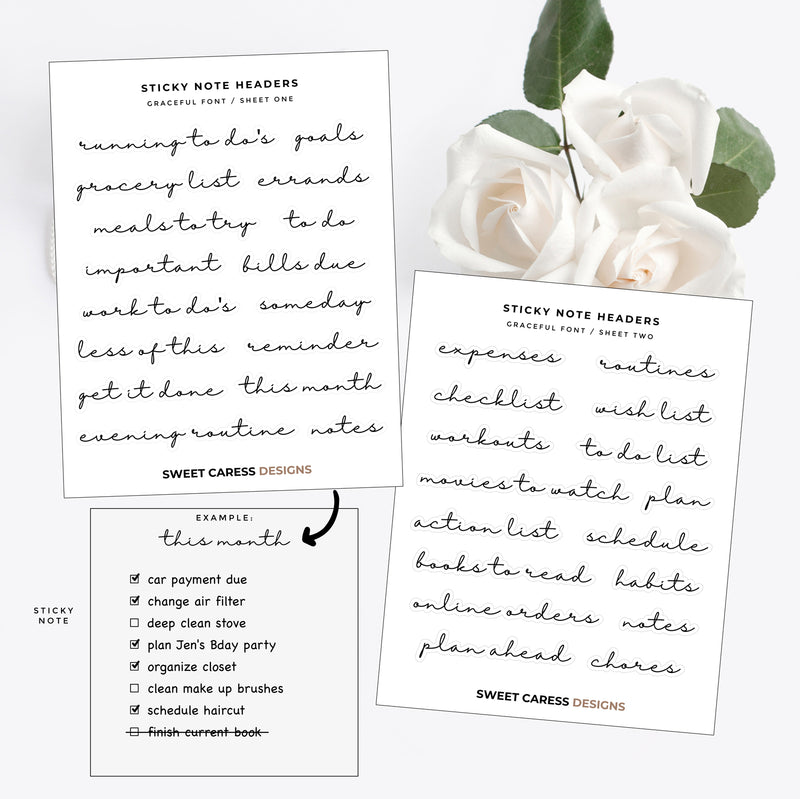 STICKY NOTE HEADERS
GRACEFUL FONT / SHEET ONE
running to do's goals
grocery list errands
meals to try to do
important bills due
work to do's someday
less of this reminder
get it done this month
evening routine notes
SWEET CARESS DESIGNS
STICKY NOTE HEADERS
GRACEFUL FONT / SHEET TWO
expenses routines
checklist wish list
workouts to do list
movies to watch plan
action list schedule
books to read habits
online orders notes
plan ahead chores
SWEET CARESS DESIGNS
EXAMPLE:
this month
car payment due
change air filter
deep clean stove
plan Jen's Bday party
organize closet
clean make up brushes
schedule haircut
finish current book
STICKY
NOTE